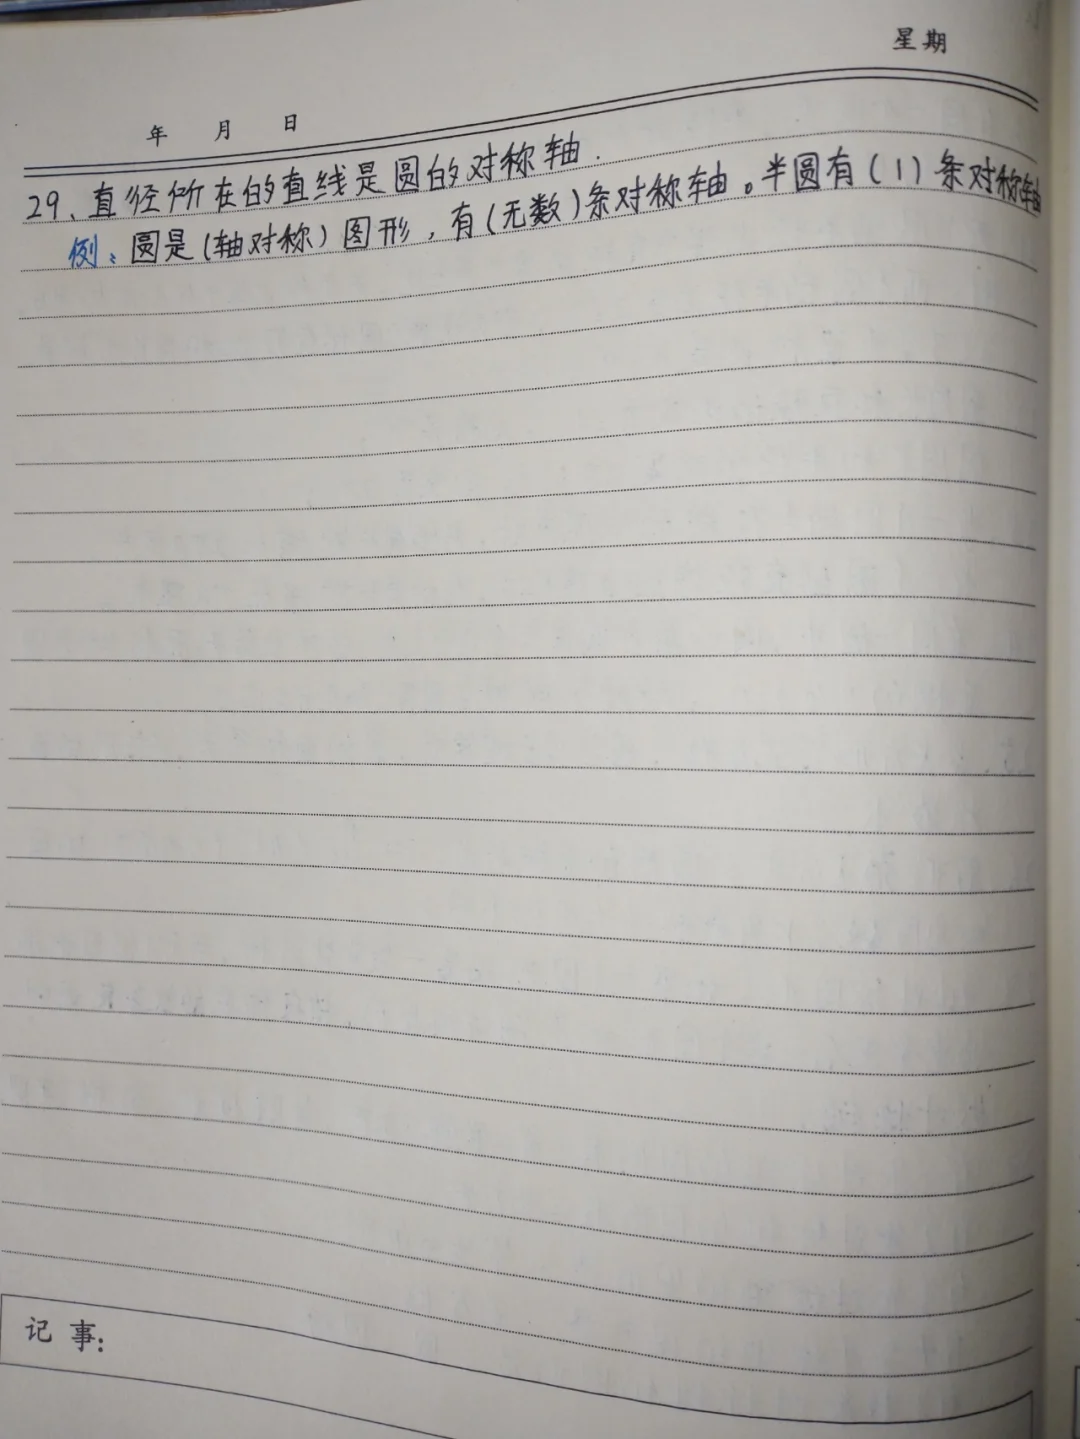 星期
年 月 日
29、直径所在的直线是圆的对称轴.
例:圆是(轴对称)图形,有(无数)条对称轴。半圆有(1)条对称轴
记事: